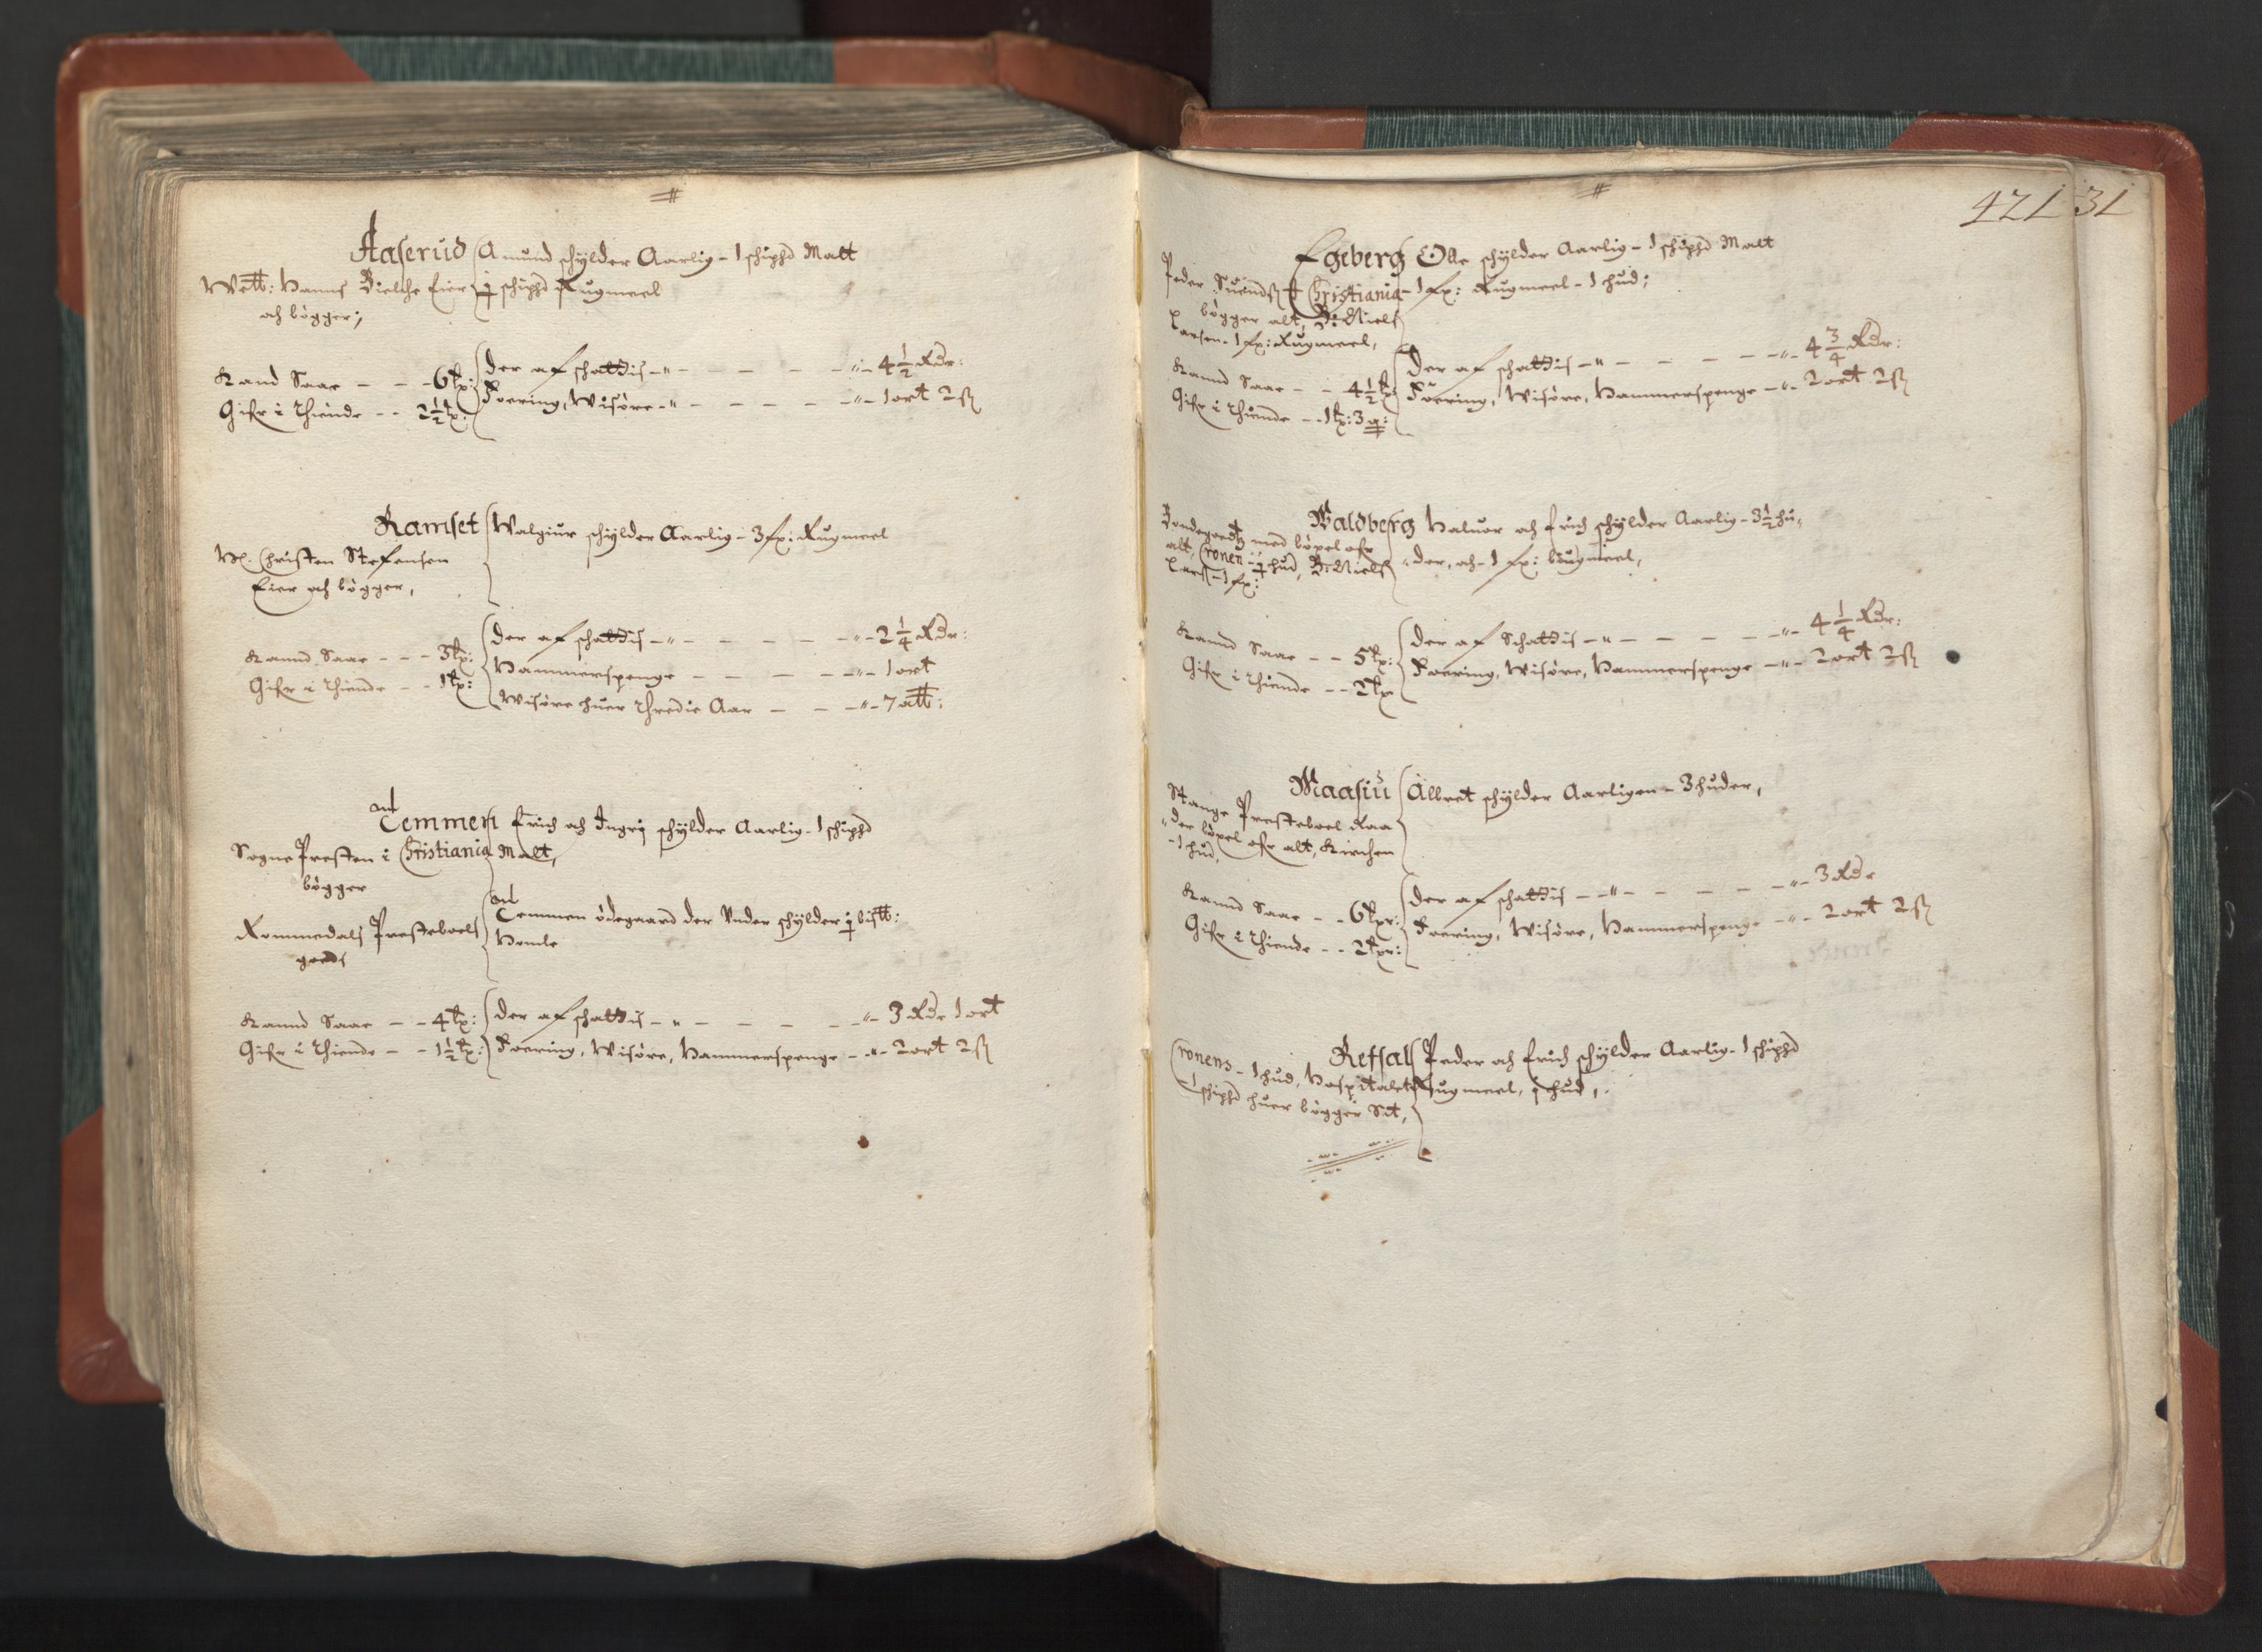 Aaserud Amund schylder Aarlig - 1 schipd Malt
Welb: Hanns Bielche Eier ½ schipd Rugmeel
och bögger;
Kand Saae - - - 6 tr: der af schattis - - - - - 4 ½ Rdr:
Gifr i Thiende - - 2 ½ tr: Foering, Wisöre - - - - - 1 ort 2 ß
Ramset Walgiur schylder Aarlig - 3 fr: Rugmeel
H. Christen Stefensen
Eier och bögger,
Kannd Saae - - - 3 tr: der af schattis - - - - - 2 ¼ Rdr:
Gifr i Thiende - - 1 tr: Hammerspenge - - - - 1 ort
Wisöre huer Thredie Aar - - - 7 alb:
Temmen Erich och Ingri schylder Aarlig - 1 schipd
Sogne Presten i Christiania Malt,
bögger
Temmen ödegaard der Vnder schylder bislb:
Rommedals Presteboels Homle
goeds
Kannd Saae - - 4 tr: der af schattis - - - - - 3 Rdr 1 ort
Gifr i Thiende - - 1 ½ tr: Foering, Wisöre, Hammerspenge - - 2 ort 2 ß
421 31
Egeberg Olle schylder Aarlig - 1 schipd Malt
Peder Suends i Christiania - 1 fr: Rugmeel - 1 hud;
bögger alt, B: Niels
Larsen - 1 fr: Rugmeel,
Kannd Saae - - 4 ½ tr: der af schattis - - - - - 4 ¾ Rdr:
Gifr i Thiende - - 1 tr: 3 q: Foering, Wisöre, Hammerspenge - - 2 ort 2 ß
Waldberg Haluor och Erich schylder Aarlig - 3 ½ hu-
Bondegoeds med böxel ofr der, och - 1 fr: bugmeel,
alt, Cronen hud, B: Niels
Lars - 1 fr:
Kannd Saae - - 5 tr: der af Schattis - - - - - 4 ¼ Rdr:
Gifr i Thiende - - 2 tr Foering, Wisöre, Hammerspenge - - 2 ort 2 ß
Maasiu Albret schylder Aarligen - 3 huder,
Stange Presteboel Raa
der böxel ofr alt, Kirchen
- 1 hud,
Kannd Saae - - 6 tr: der af schattis - - - - - 3 Rdr
Gifr i Thiende - - 2 tr: Foering, Wisöre, Hammerspenge - - 2 ort 2 ß
Refsal Peder och Erich schylder Aarlig - 1 schipd
Cronens - 1 hud, Hospitalet Rugmeel, hud,
1 schipd huer bögger Sit,